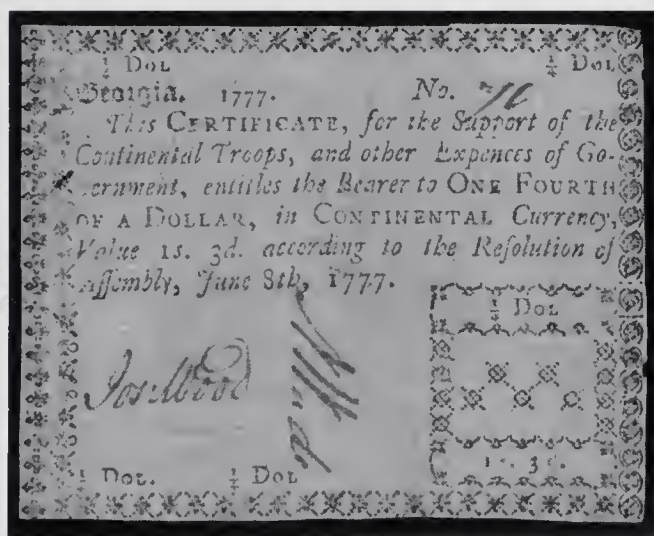 ¼ Dol ¼ Dol
Georgia. 1777. No.
This CERTIFICATE, for the Support of the
Continental Troops, and other Expences of Go-
vernment, entitles the Bearer to ONE FOURTH
OF A DOLLAR, in CONTINENTAL Currency,
Value 1s. 3d. according to the Resolution of
Assembly, June 8th, 1777.
¼ Dol
Jos Wood
1s. 3d.
¼ Dol. ¼ Dol